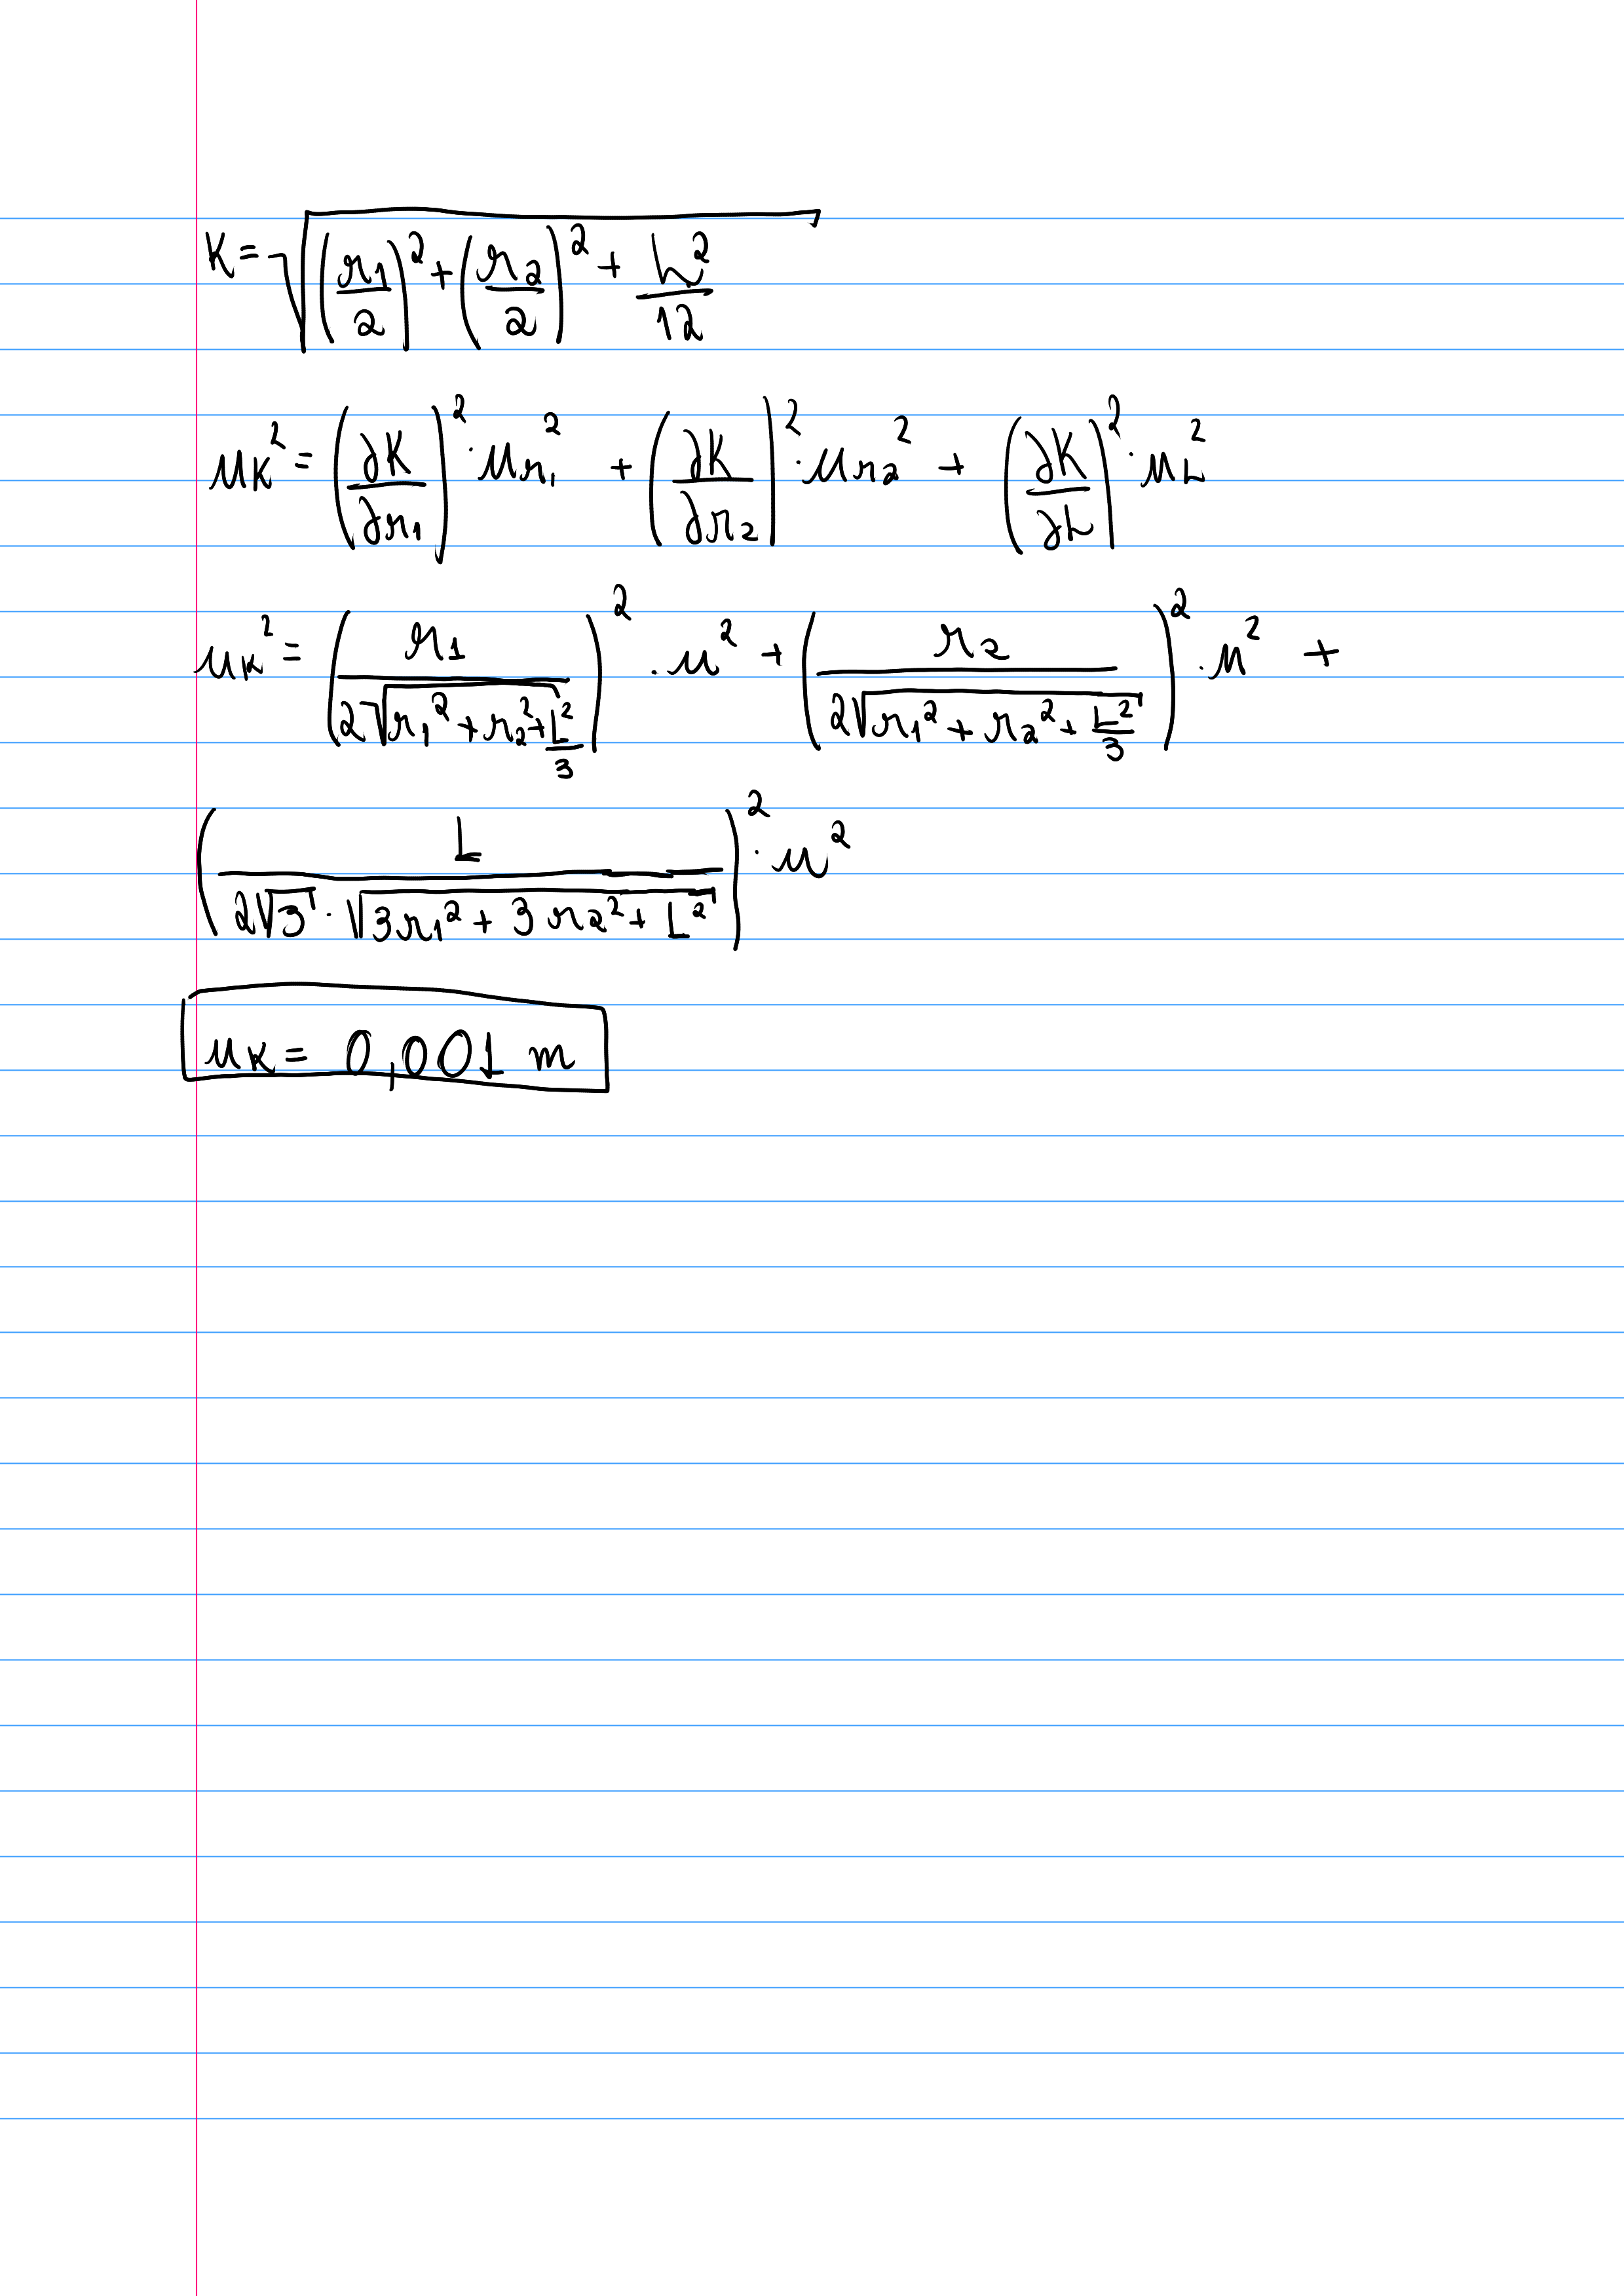 K = √((r₁/2)² + (r₂/2)² + L²/12)
μK² = (∂K/∂r₁)² · μr₁² + (∂K/∂r₂)² · μr₂² + (∂K/∂L)² · μL²
μK² = (r₁/(2√(r₁² + r₂² + L²/3)))² · μ² + (r₂/(2√(r₁² + r₂² + L²/3)))² · μ² +
(L/(2√3 · √(3r₁² + 3r₂² + L²)))² · μ²
μK = 0,001 m